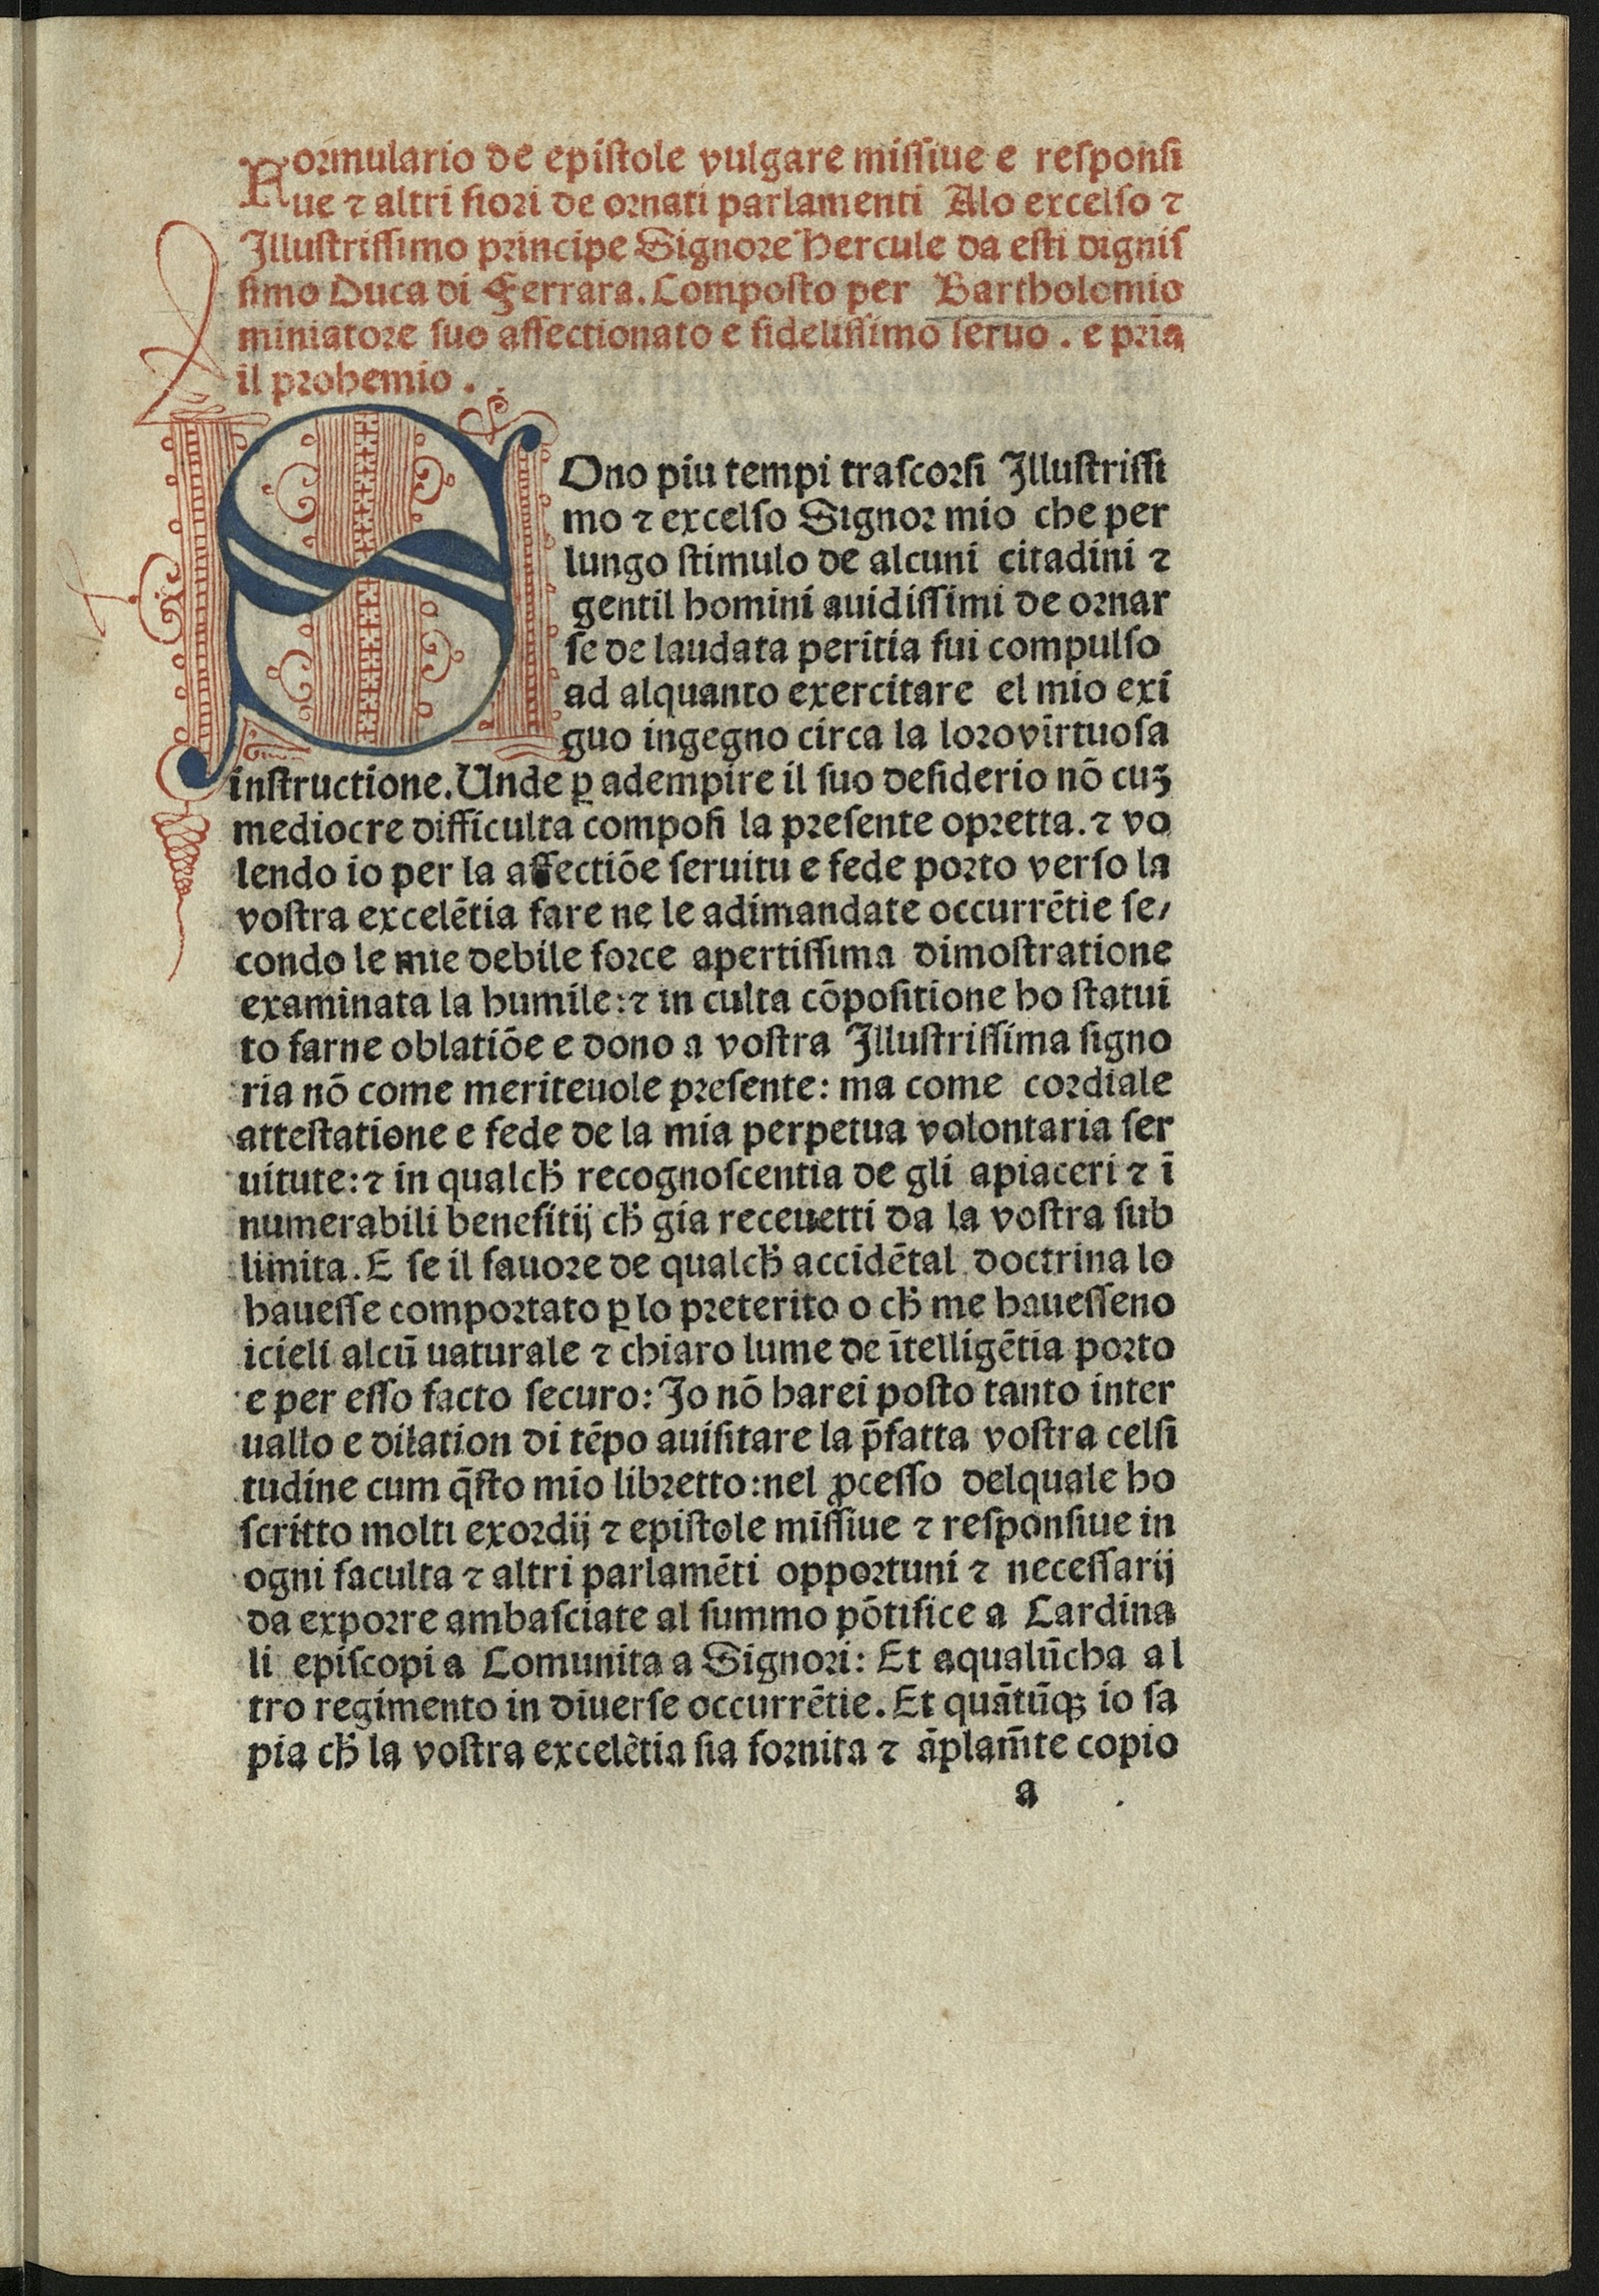 Formulario de epistole vulgare missiue e responsi
ue ⁊ altri fiori de ornati parlamenti Alo excelso ⁊
Illustrissimo principe Signore Hercule da esti dignis
simo Duca di Ferrara. Composto per Bartholomio
miniatore suo affectionato e fidelissimo seruo . e pria
il prohemio .
SOno piu tempi trascorsi Illustrissi
mo ⁊ excelso Signor mio che per
lungo stimulo de alcuni citadini ⁊
gentil homini auidissimi de ornar
se de laudata peritia fui compulso
ad alquanto exercitare el mio exi
guo ingegno circa la loro virtuosa
instructione. Unde ꝑ adempire il suo desiderio nō cuꝫ
mediocre difficulta composi la presente opretta. ⁊ vo
lendo io per la affectiōe seruitu e fede porto verso la
vostra excelētia fare ne le adimandate occurrētie se/
condo le mie debile force apertissima dimostratione
examinata la humile: ⁊ in culta cōpositione ho statui
to farne oblatiōe e dono a vostra Illustrissima signo
ria nō come meriteuole presente: ma come cordiale
attestatione e fede de la mia perpetua volontaria ser
uitute: ⁊ in qualcħ recognoscentia de gli apiaceri ⁊ ī
numerabili benefitij cħ gia receuetti da la vostra sub
limita. E se il fauore de qualcħ accidētal doctrina lo
hauesse comportato ꝑ lo preterito o cħ me hauesseno
icieli alcū uaturale ⁊ chiaro lume de ītelligētia porto
e per esso facto securo: Io nō harei posto tanto inter
uallo e dilation di tēpo auisitare la p̄fatta vostra celsi
tudine cum q̄sto mio libretto: nel ꝓcesso delquale ho
scritto molti exordij ⁊ epistole missiue ⁊ responsiue in
ogni faculta ⁊ altri parlamēti opportuni ⁊ necessarij
da exporre ambasciate al summo pōtifice a Cardina
li episcopi a Comunita a Signori: Et aqualūcha al
tro regimento in diuerse occurrētie. Et quātūqꝫ io sa
pia cħ la vostra excelētia sia fornita ⁊ āplam̄te copio
a